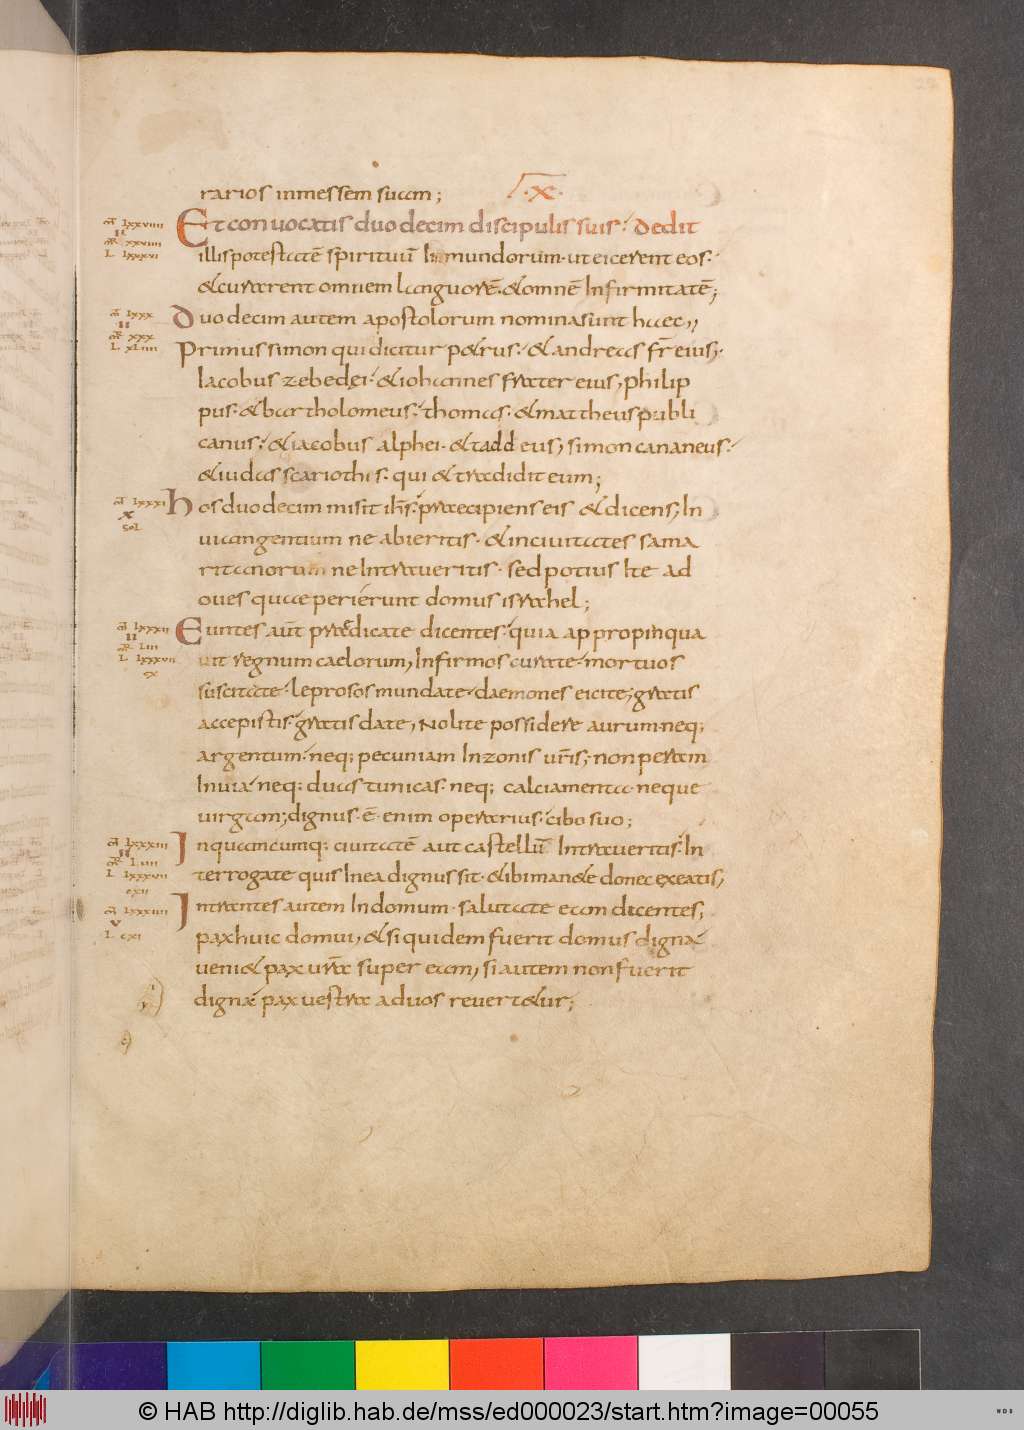 rarios inmessem suam; ·X·
Et convocatis duodecim discipulis suis· dedit
illis potestatē spirituū Inmundorum· ut eicerent eos·
&curarent omnem languorē· &omnē Infirmitatē;
am̄ lxxviiii
II
mr̄ xxviiii
L lxxxvi
Duodecim autem apostolorum nomina sunt haec;
am̄ lxxx
II
mr̄ xxx
L xLiiii
Primus simon qui dicitur p&rus· &andreas fr̄ eius;
Iacobus zebedęi· &iohannes frater eius, philip
pus· &bartholomeus· thomas· &mattheus publi
canus· &iacobus alphei· &taddeus, simon cananeus·
&iudas scariothis· qui &tradidit eum;
am̄ lxxxi
X
sol
Hos duodecim misit ih̄s· praecipiens eis &dicens, In
viam gentium ne abieritis· &in civitates sama
ritanorum ne Intraveritis· sed potius Ite ad
oves quae perierunt domus israhel;
am̄ lxxxii
II
mr̄ Liii
L lxxxvii
cx
Euntes aut̄ praedicate dicentes· quia appropinqua
vit regnum caelorum, Infirmos curate· mortuos
suscitate· leprosos mundate· daemones eicite; gratis
accepistis· gratis date, Nolite possidere aurum· neq;
argentum· neq; pecuniam In zonis vr̄is; non peram
In via· neq; duas tunicas· neq; calciamenta· neque
virgam; dignus· ē· enim operarius· cibo suo;
am̄ lxxxiii
II
mr̄ Liiii
L lxxxvii
cxii
In quamcumq; civitatē aut castellū Intraveritis· In
terrogate quis In ea dignus sit· &ibi man&e donec exeatis,
am̄ lxxxiiii
V
L cxi
Intrantes autem In domum· salutate eam dicentes;
pax huic domui, &si quidem fuerit domus digna·
veni& pax vr̄a super eam, si autem non fuerit
digna· pax vestra ad vos revert&ur;
© HAB http://diglib.hab.de/mss/ed000023/start.htm?image=00055